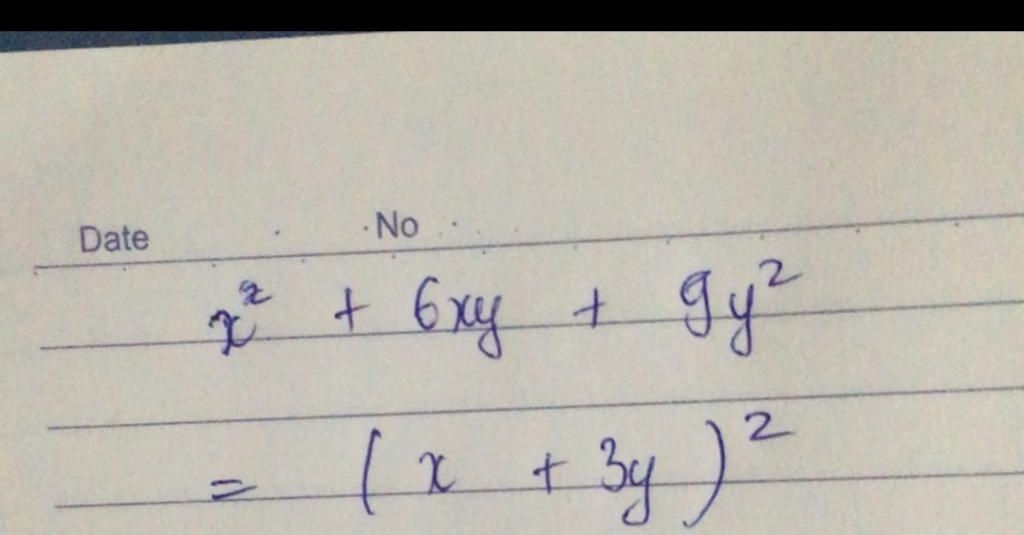 Date No
x² + 6xy + 9y²
= (x + 3y)²